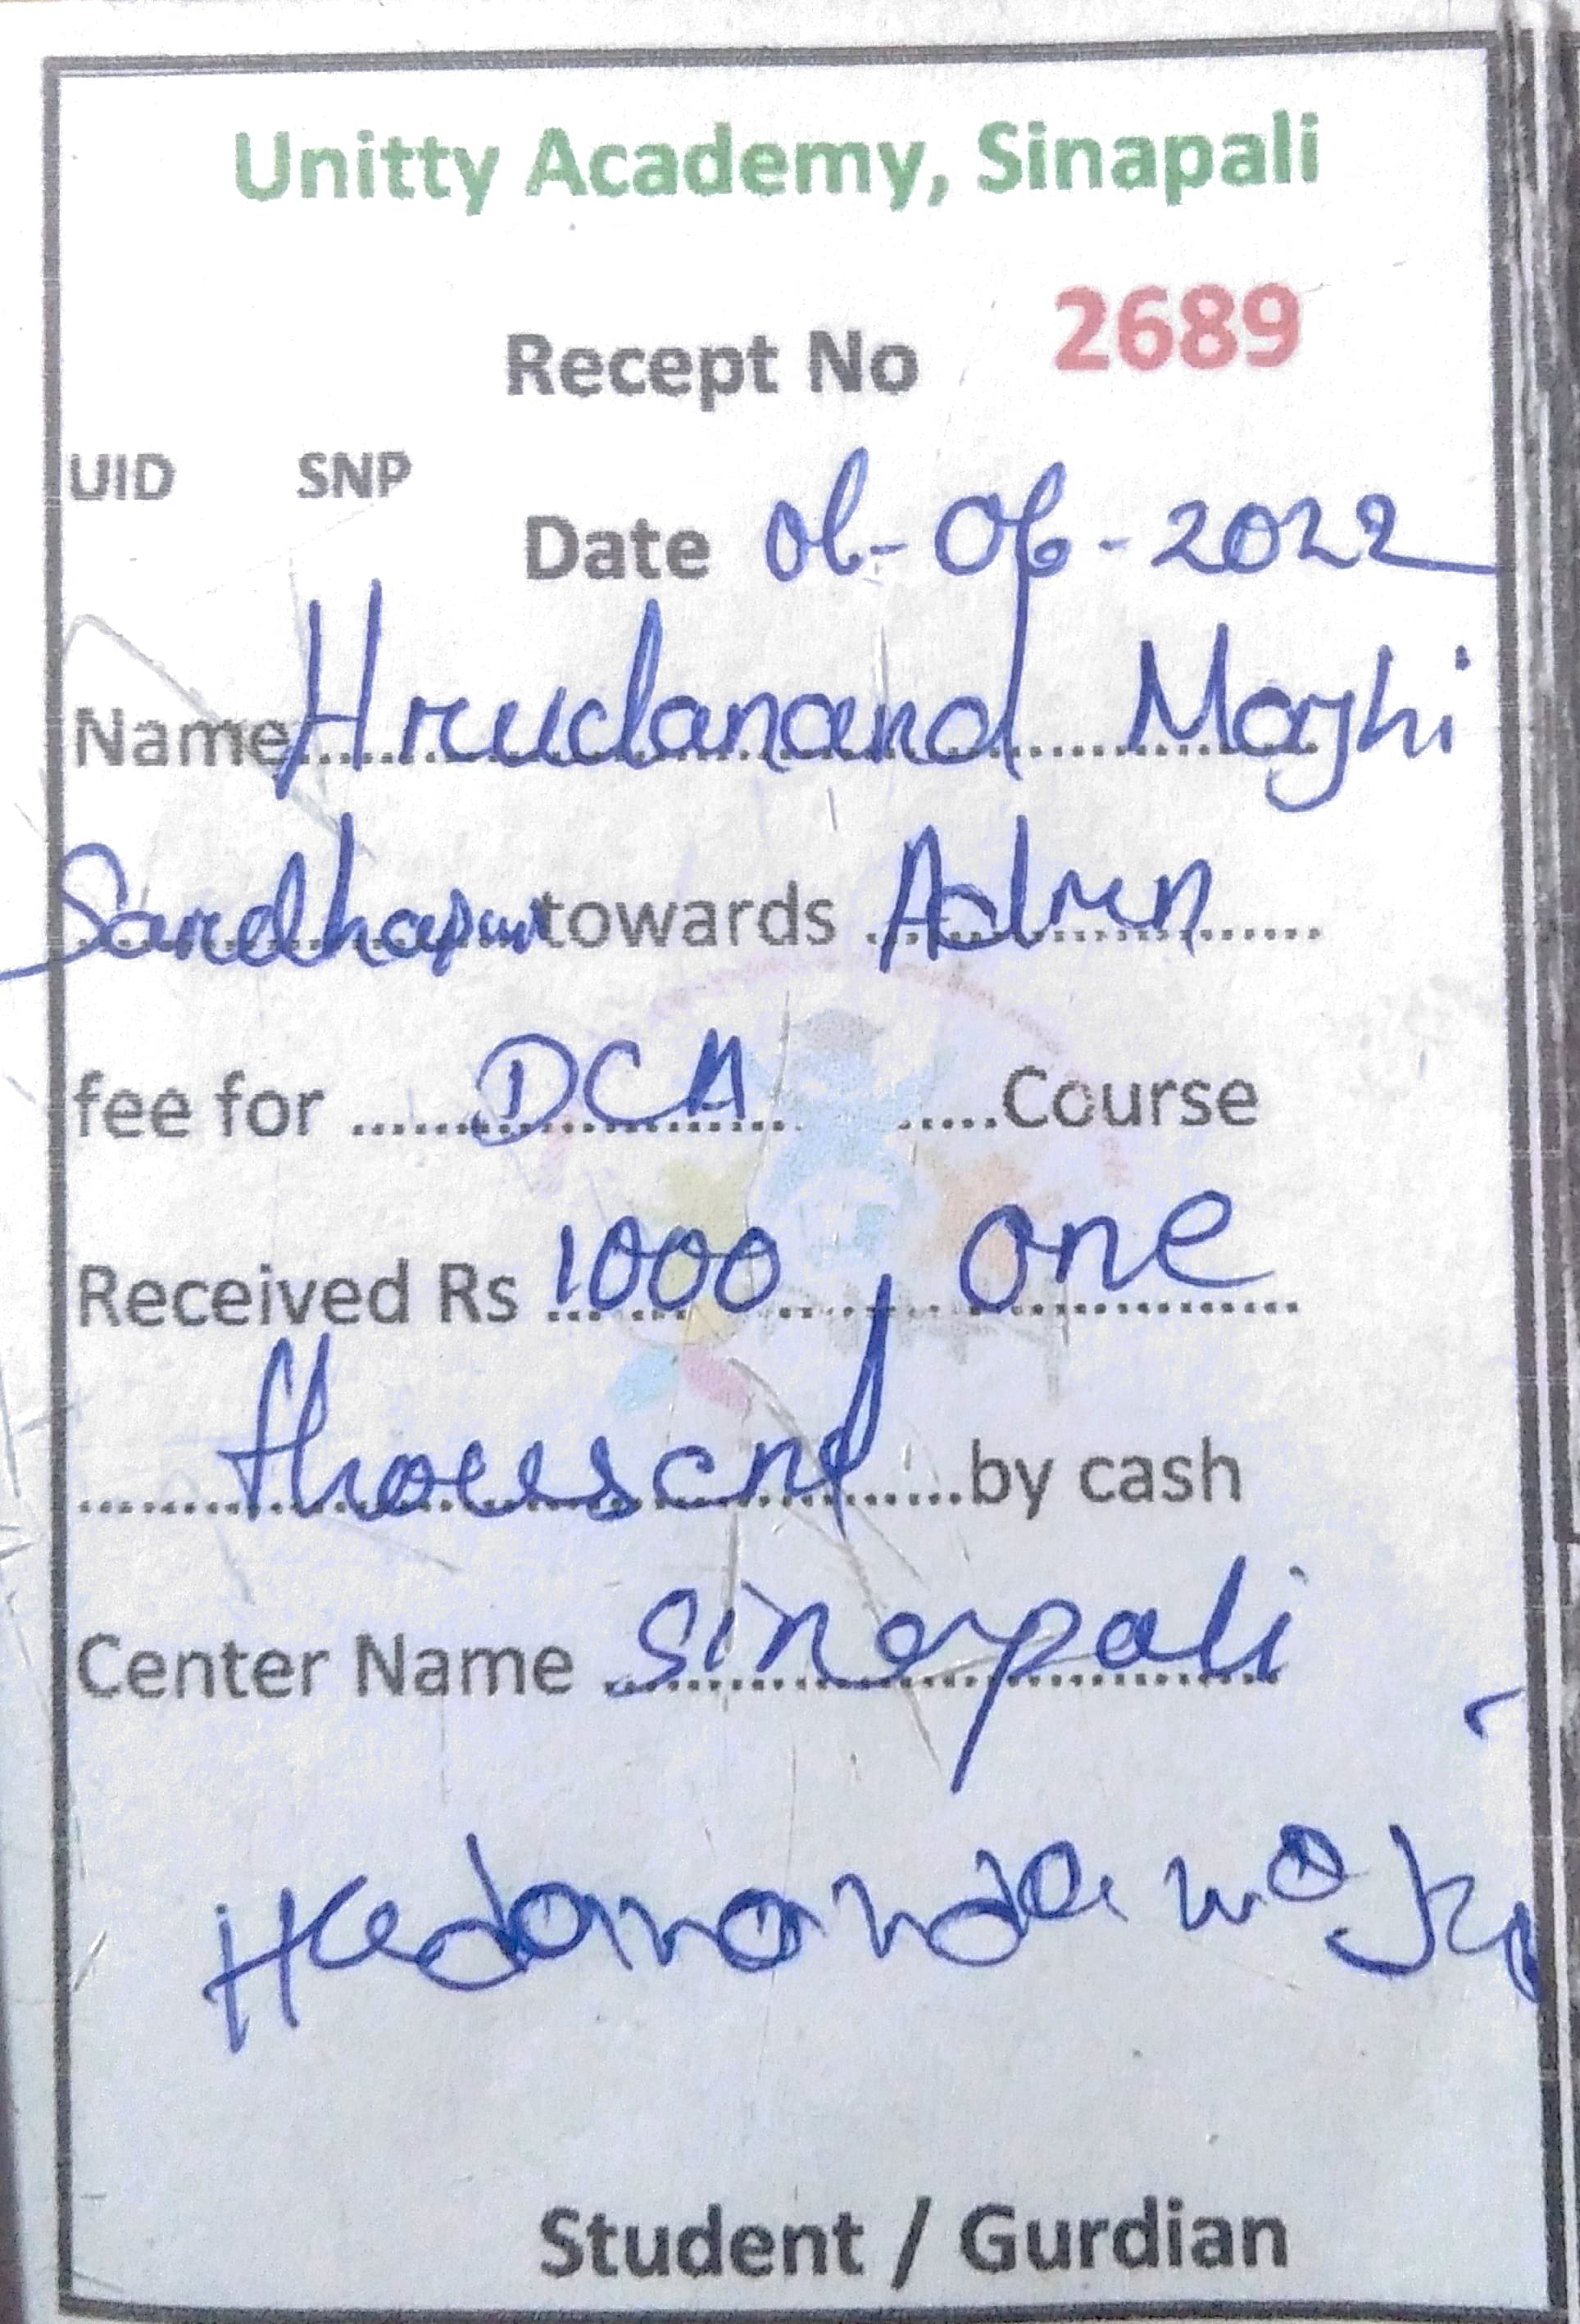 Unitty Academy, Sinapali
Recept No 2689
UID SNP
Date 06-06-2022
Name Hrudanand Majhi
Sardhapur towards Admn
fee for DCA Course
Received Rs 1000, One
thousand by cash
Center Name Sinapali
Student / Gurdian